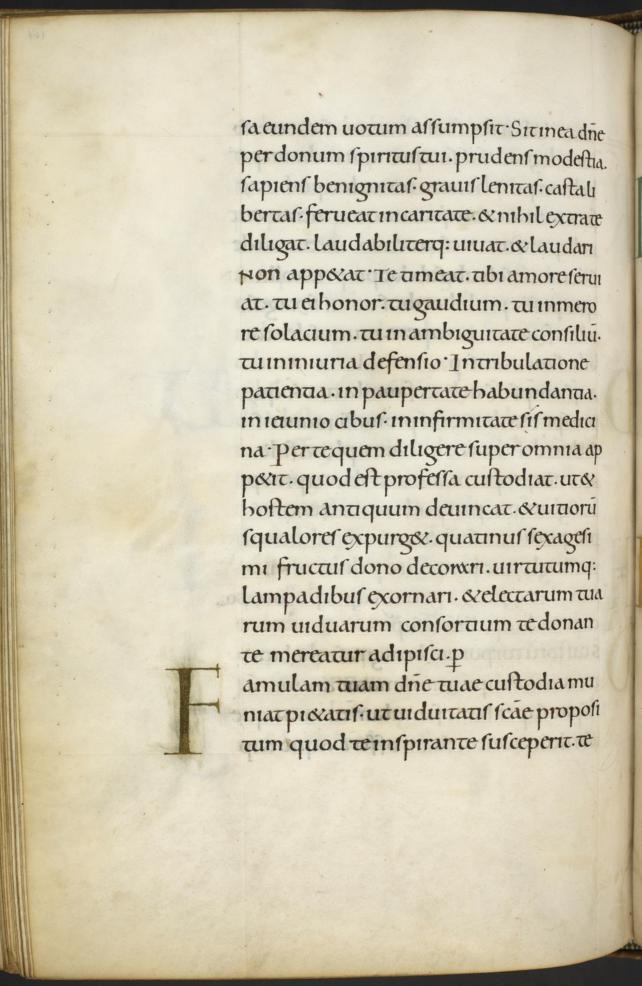 sa eundem uotum assumpsit· Sit in ea dn̄e
per donum spiritus tui. prudens modestia.
sapiens benignitas. grauis lenitas. casta li
bertas. ferueat in caritate. & nihil extra te
diligat. laudabiliterq: uiuat. & laudari
Non app&at· Te timeat. tibi amore serui
at. tu ei honor. tu gaudium. tu in mero
re solacium. tu in ambiguitate consiliū.
tu in iniuria defensio· In tribulatione
patientia. in paupertate habundantia.
in ieiunio cibus. in infirmitate sis medici
na· Per te quem diligere super omnia ap
p&it. quod est professa custodiat. ut &
hostem antiquum deuincat. & uitiorū
squalores expurg&. quatinus sexagesi
mi fructus dono decorari. uirtutumq:
lampadibus exornari. & electarum tua
rum uiduarum consortium te donan
te mereatur adipisci. p
Famulam tuam dn̄e tuae custodia mu
niat pi&atis. ut uiduitatis scāe proposi
tum quod te inspirante susceperit. te